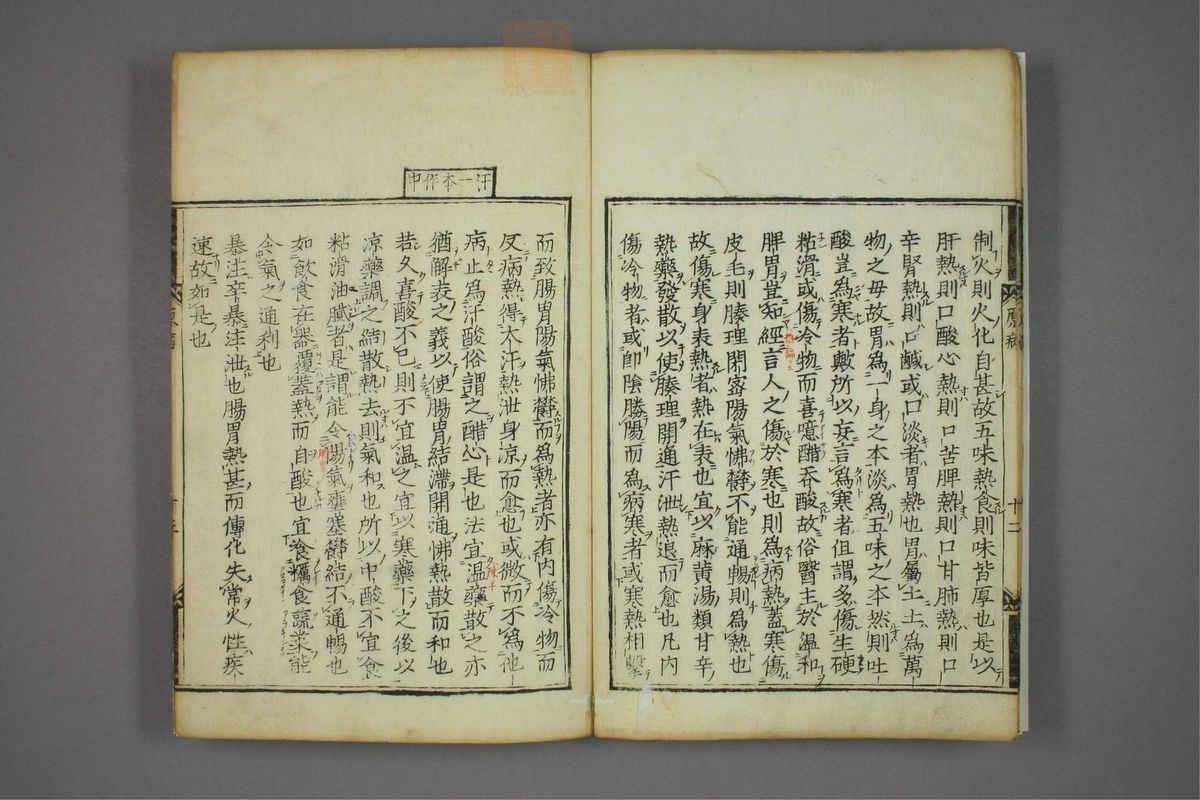 制火則火化自甚故五味熱食則味皆厚也是以
肝熱則口酸心熱則口苦脾熱則口甘肺熱則口
辛腎熱則口鹹或口淡者胃熱也胃屬土土爲萬
物之母故胃爲一身之本淡爲五味之本然則吐
酸豈爲寒者歟所以妄言爲寒者但謂多傷生硬
粘滑或傷冷物而喜噫醋吞酸故俗醫主於温和
脾胃豈知經言人之傷於寒也則爲病熱蓋寒傷
皮毛則腠理閉密陽氣怫欝不能通暢則爲熱也
故傷寒身表熱者熱在表也宜以麻黄湯類甘辛
熱藥發散以使腠理開通汗泄熱退而愈也凡内
傷冷物者或即陰勝陽而爲病寒者或寒熱相擊
原病
十二
汗一本作中
而致腸胃陽氣怫欝而爲熱者亦有内傷冷物而
反病熱得大汗熱泄身凉而愈也或微而不爲他
病止爲汗酸俗謂之醋心是也法宜温藥散之亦
猶解表之義以使腸胃結滯開通怫熱散而和也
若久喜酸不已則不宜温之宜以寒藥下之後以
凉藥調之結散熱去則氣和也所以中酸不宜食
粘滑油膩者是謂能令陽氣壅塞欝結不通暢也
如飲食在器覆蓋熱而自酸也宜飡糲食蔬菜能
令氣之通利也
暴注卒暴注泄也腸胃熱甚而傳化失常火性疾
速故如是也